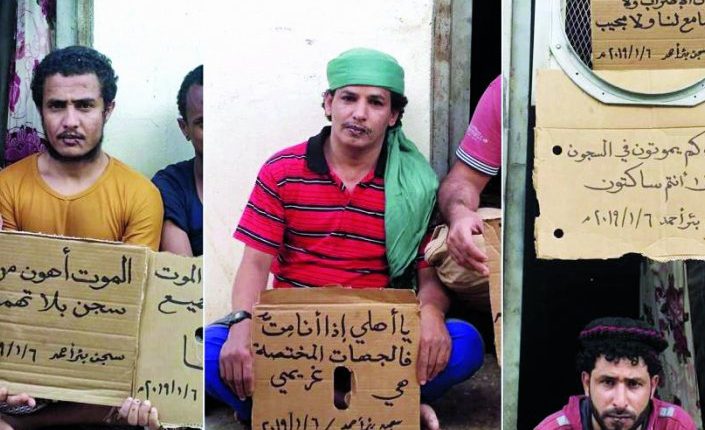 الموت أهون من
سجن بلا تهم
سجن بئر أحمد ٢٠١٩/١/٦
الموت
٢٠١٩/١/٦م
يا أهلي إذا أنا مت
فالجهات المختصة
هي غريمي
سجن بئر أحمد / ٢٠١٩/١/٦م
الإضراب ولا
سامع لنا ولا مجيب
سجن بئر أحمد ٢٠١٩/١/٦م
كم يموتون في السجون
أنتم ساكتون
بئر أحمد ٢٠١٩/١/٦م